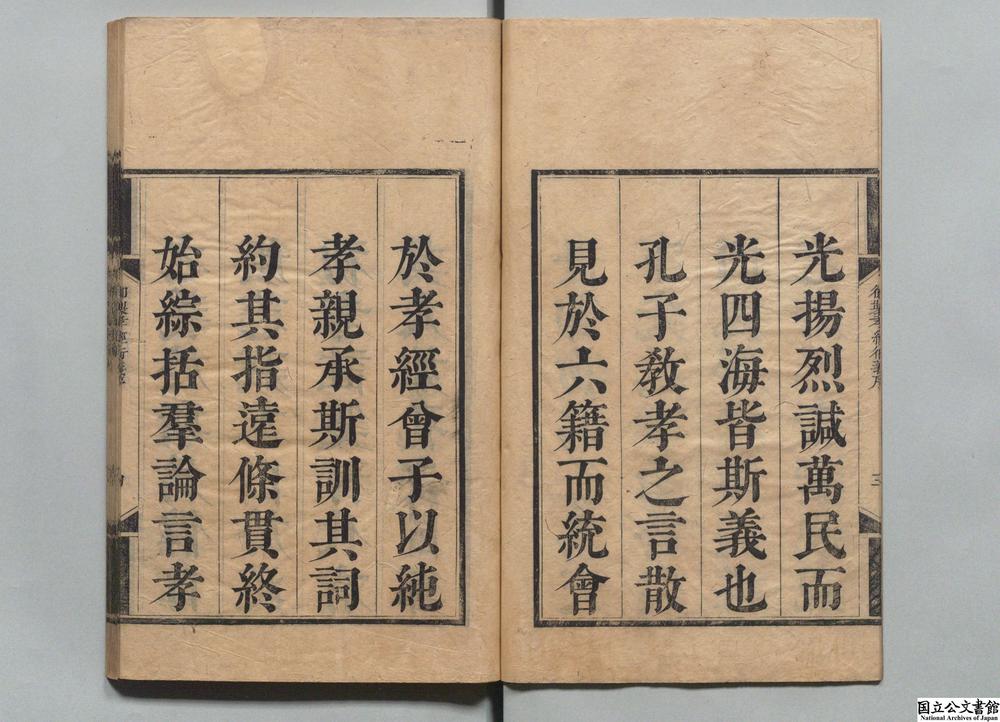 光揚烈諴萬民而
光四海皆斯義也
孔子敎孝之言散
見於六籍而統會
於孝經曾子以純
孝親承斯訓其詞
約其指遠條貫終
始綜括羣論言孝
三
国立公文書館
National Archives of Japan